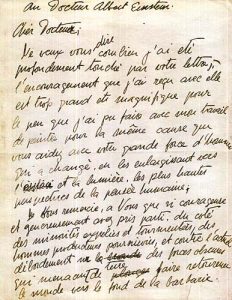 au Docteur Albert Einstein.
Cher Docteur;
Je veux vous dire
combien j'ai été
profondément touché par votre lettre,
l'encouragement que j'ai reçu avec elle
est trop grand et magnifique pour
le peu que j'ai pu faire avec mon travail
de peintre pour la même cause que
vous aidez avec votre grande force d'homme
qui a changé, en les enlargissant vers
et la lumière, les plus hautes
perspectives de la pensée humaine;
Je vous remercie, à Vous que si courageuse
et généreusement avez pris parti du coté
des minorités exploités et tourmentées, des
hommes producteurs poursuivis, et contre l'actuel
débordement de des forces obscures
qui menacent de faire retourner
le monde vers le fond de la barbarie.